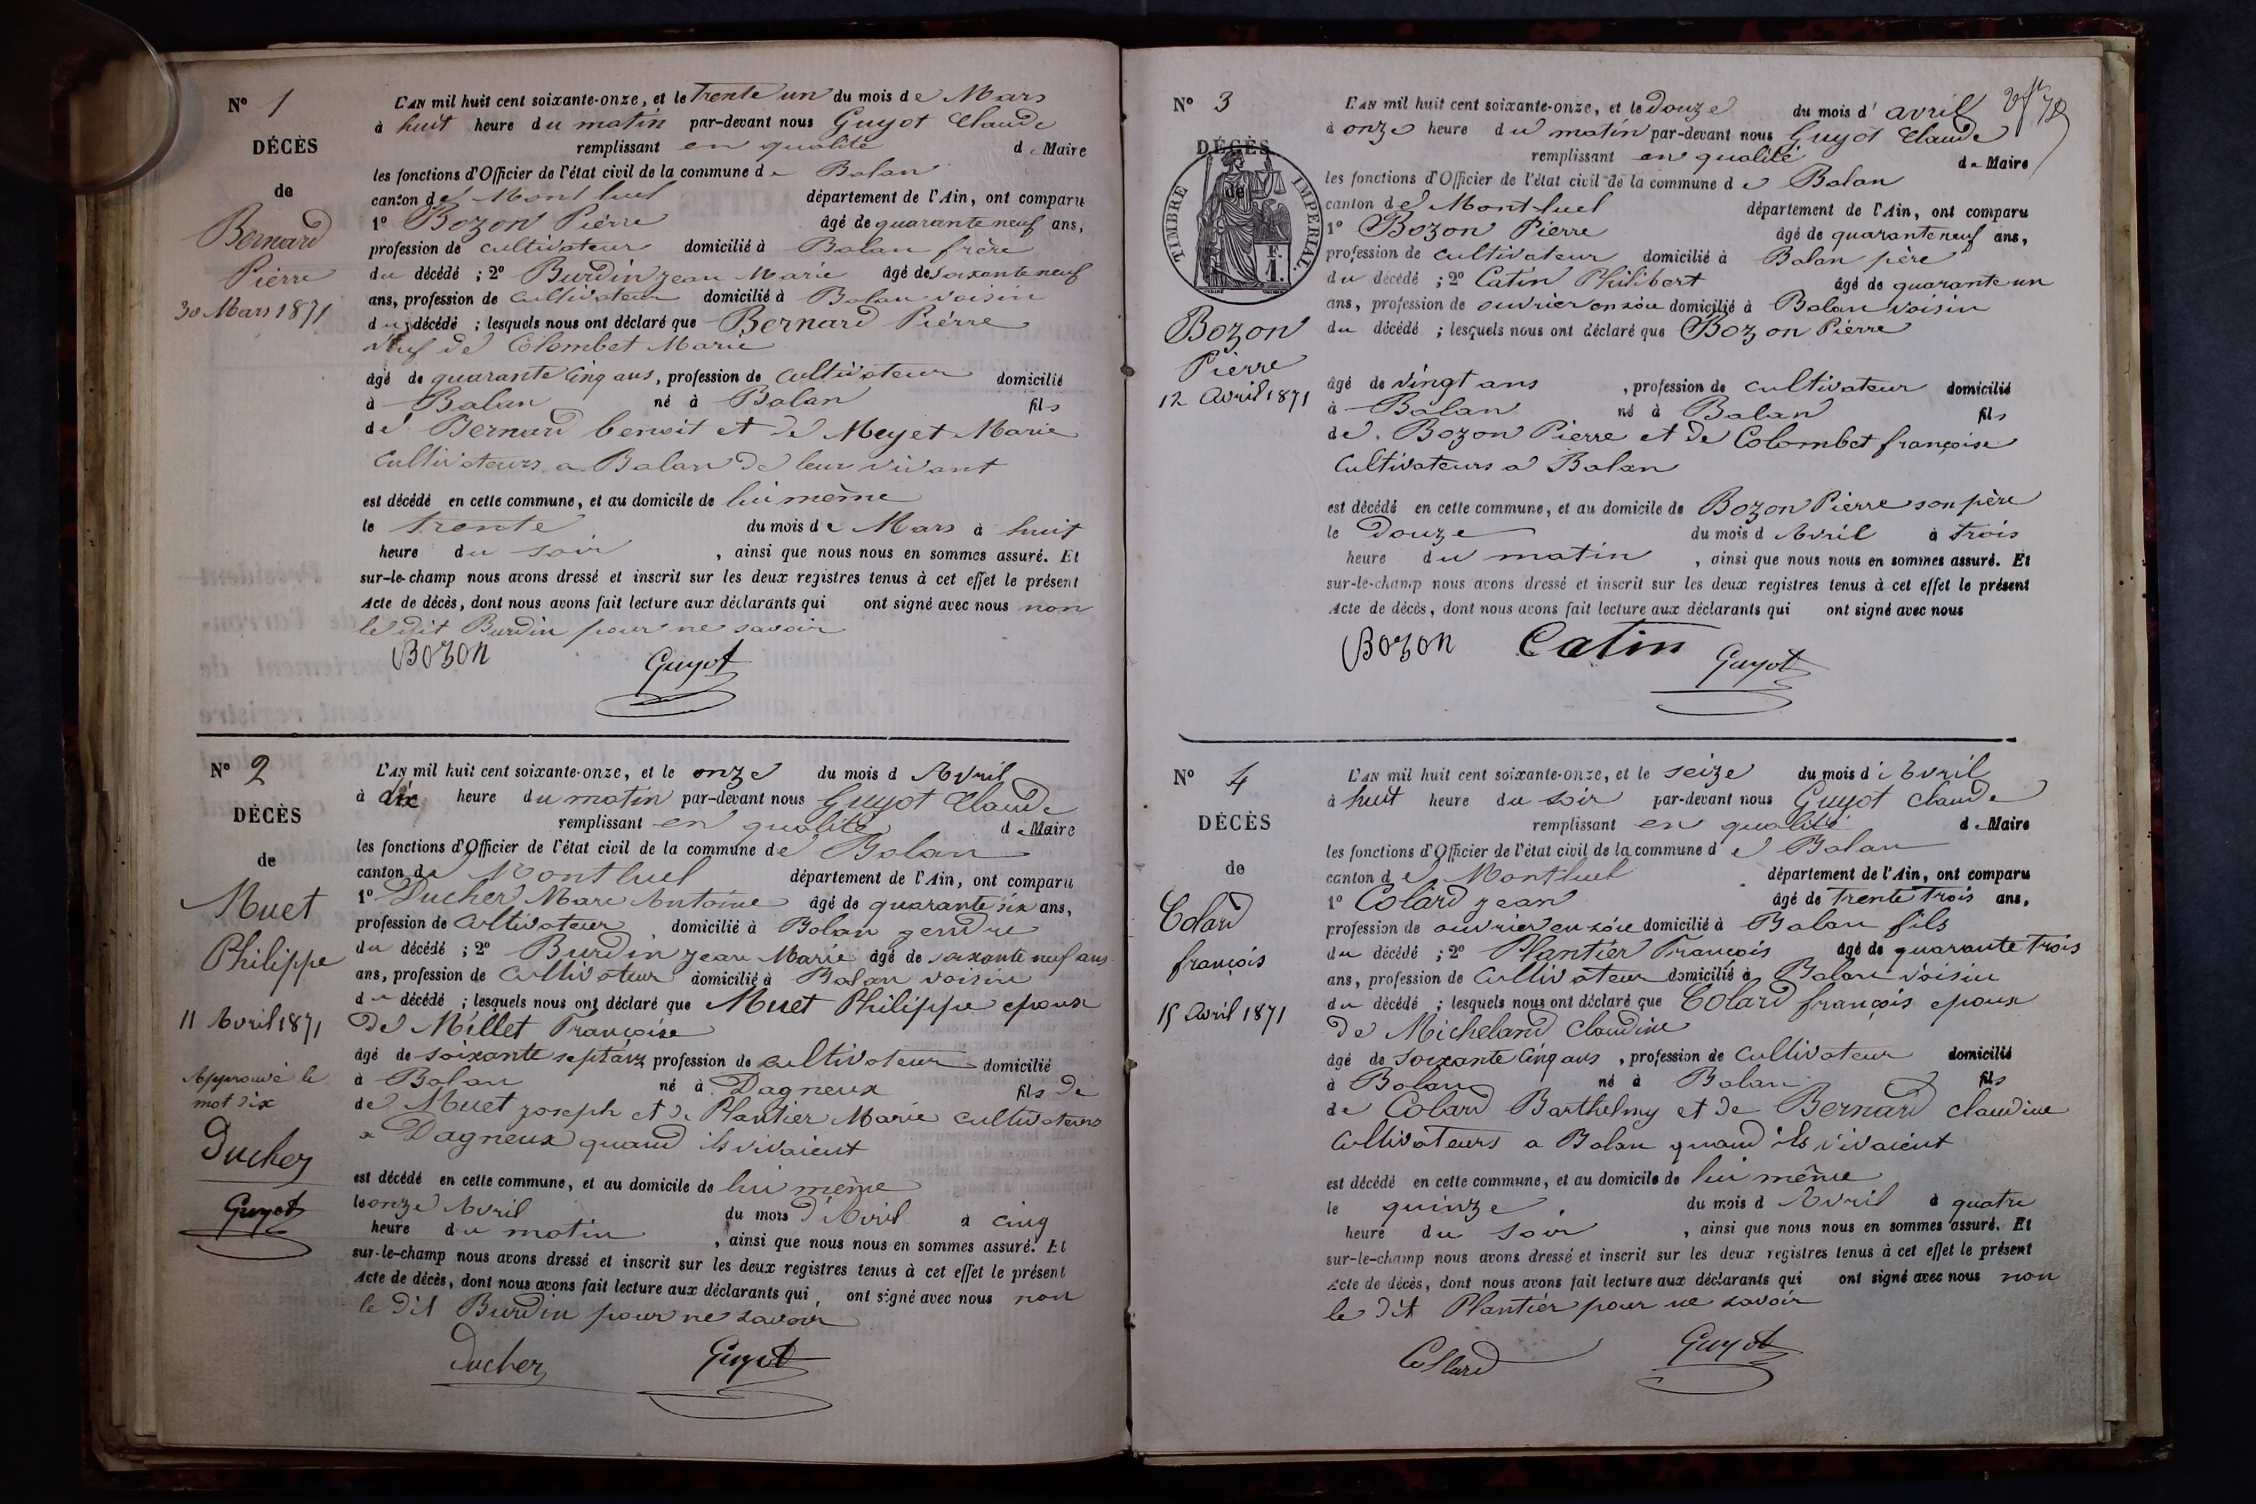 N° 1
DÉCÈS
de
Bernard
Pierre
30 Mars 1871
L'AN mil huit cent soixante-onze, et le trente un du mois de Mars
à huit heure du matin par-devant nous Guyot Claude
remplissant en qualité de Maire
les fonctions d'Officier de l'état civil de la commune de Balan
canton de Montluel département de l'Ain, ont comparu
1° Bozon Pierre âgé de quarante neuf ans,
profession de cultivateur domicilié à Balan frère
du décédé ; 2° Burdin jean Marie âgé de soixante neuf
ans, profession de cultivateur domicilié à Balan voisin
du décédé ; lesquels nous ont déclaré que Bernard Pierre
veuf de Colombet Marie
âgé de quarante cinq ans, profession de cultivateur domicilié
à Balan né à Balan fils
de Bernard benoit et de Meyet Marie
cultivateurs a Balan de leur vivant
est décédé en cette commune, et au domicile de lui même
le trente du mois de Mars à huit
heure du soir , ainsi que nous nous en sommes assuré. Et
sur-le-champ nous avons dressé et inscrit sur les deux registres tenus à cet effet le présent
Acte de décès, dont nous avons fait lecture aux déclarants qui ont signé avec nous non
le dit Burdin pour ne savoir
Bozon Guyot
N° 2
DÉCÈS
de
Muet
Philippe
11 Avril 1871
Approuvé le
mot dix
Ducher
Guyot
L'AN mil huit cent soixante-onze, et le onze du mois d Avril
à dix heure du matin par-devant nous Guyot Claude
remplissant en qualité de Maire
les fonctions d'Officier de l'état civil de la commune de Balan
canton de Montluel département de l'Ain, ont comparu
1° Ducher Marc Antoine âgé de quarante six ans,
profession de cultivateur domicilié à Balan gendre
du décédé ; 2° Burdin jean Marie âgé de soixante neuf ans
ans, profession de cultivateur domicilié à Balan voisin
du décédé ; lesquels nous ont déclaré que Muet Philippe epoux
de Millet Françoise
âgé de soixante sept ans, profession de cultivateur domicilié
à Balan né à Dagneux fils de
de Muet joseph et de Plantier Marie cultivateurs
a Dagneux quand ils vivaient
est décédé en cette commune, et au domicile de lui même
le onze Avril du mois d'Avril à cinq
heure du matin , ainsi que nous nous en sommes assuré. Et
sur-le-champ nous avons dressé et inscrit sur les deux registres tenus à cet effet le présent
Acte de décès, dont nous avons fait lecture aux déclarants qui ont signé avec nous non
le dit Burdin pour ne savoir
Ducher Guyot
N° 3
DÉCÈS
de
TIMBRE IMPERIAL.
F.
1.
Bozon
Pierre
12 Avril 1871
L'AN mil huit cent soixante-onze, et le douze du mois d' avril
à onze heure du matin par-devant nous Guyot Claude
remplissant en qualité de Maire
les fonctions d'Officier de l'état civil de la commune de Balan
canton de Montluel département de l'Ain, ont comparu
1° Bozon Pierre âgé de quarante neuf ans,
profession de cultivateur domicilié à Balan père
du décédé ; 2° Catin Philibert âgé de quarante un
ans, profession de ouvrier en soie domicilié à Balan voisin
du décédé ; lesquels nous ont déclaré que Bozon Pierre
âgé de vingt ans , profession de cultivateur domicilié
à Balan né à Balan fils
de Bozon Pierre et de Colombet françoise
cultivateurs a Balan
est décédé en cette commune, et au domicile de Bozon Pierre son père
le Douze du mois d Avril à trois
heure du matin , ainsi que nous nous en sommes assuré. Et
sur-le-champ nous avons dressé et inscrit sur les deux registres tenus à cet effet le présent
Acte de décès, dont nous avons fait lecture aux déclarants qui ont signé avec nous
Bozon Catin Guyot
N° 4
DÉCÈS
de
Colard
françois
15 Avril 1871
L'AN mil huit cent soixante-onze, et le seize du mois d'Avril
à huit heure du soir par-devant nous Guyot Claude
remplissant en qualité de Maire
les fonctions d'Officier de l'état civil de la commune de Balan
canton de Montluel département de l'Ain, ont comparu
1° Colard jean âgé de trente trois ans,
profession de ouvrier en soie domicilié à Balan fils
du décédé ; 2° Plantier François âgé de quarante trois
ans, profession de cultivateur domicilié à Balan voisin
du décédé ; lesquels nous ont déclaré que Colard françois epoux
de Micheland Claudine
âgé de soixante cinq ans , profession de cultivateur domicilié
à Balan né à Balan fils
de Colard Barthelmy et de Bernard claudine
cultivateurs a Balan quand ils vivaient
est décédé en cette commune, et au domicile de lui même
le quinze du mois d Avril à quatre
heure du soir , ainsi que nous nous en sommes assuré. Et
sur-le-champ nous avons dressé et inscrit sur les deux registres tenus à cet effet le présent
Acte de décès, dont nous avons fait lecture aux déclarants qui ont signé avec nous non
le dit Plantier pour ne savoir
Collard Guyot